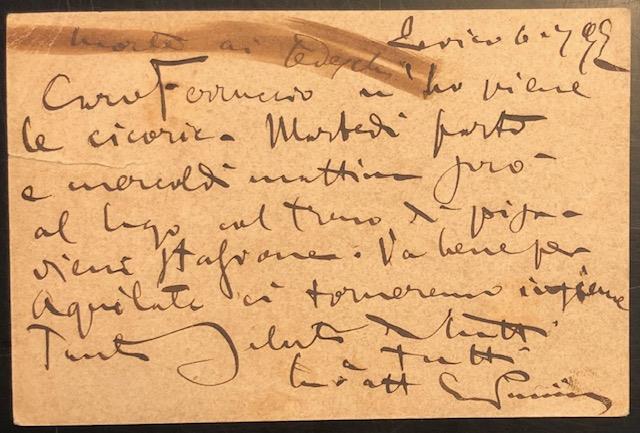 morte ai tedeschi
Levico 6-7 92
Caro Ferruccio n'ho piene
le cicorie. Martedì parto
e mercoldì mattina
al lago col treno di
viene stagione. Va bene per
Aquilata ci torneremo insieme
Tanti Saluti a tutti
tutti